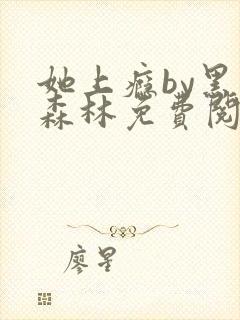 她上瘾by黑
森林免费阅
廖星